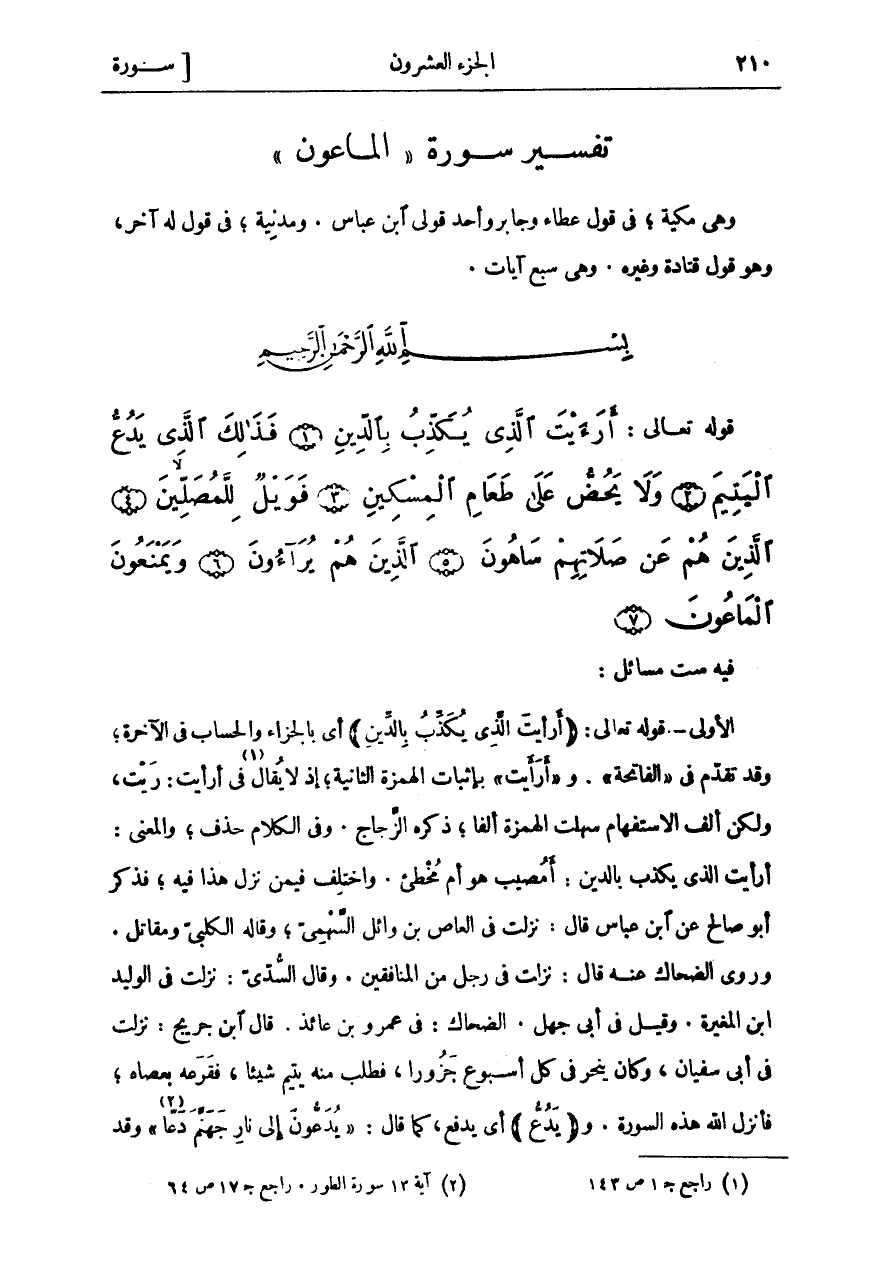 ٢١٠ الجزء العشرون [ ســورة
تفســير ســورة « المـاعون »
وهى مكية ؛ فى قول عطاء وجابر وأحد قولى آبن عباس . ومدنِية ؛ فى قول له آخر،
وهو قول قتادة وغيره . وهى سبع آيات .
بِسْمِ ٱللَّهِ ٱلرَّحْمَٰنِ ٱلرَّحِيمِ
قوله تعـالى : أَرَءَيْتَ ٱلَّذِى يُكَذِّبُ بِٱلدِّينِ ١ فَذَٰلِكَ ٱلَّذِى يَدُعُّ
ٱلْيَتِيمَ ٢ وَلَا يَحُضُّ عَلَىٰ طَعَامِ ٱلْمِسْكِينِ ٣ فَوَيْلٌ لِّلْمُصَلِّينَ ٤
ٱلَّذِينَ هُمْ عَن صَلَاتِهِمْ سَاهُونَ ٥ ٱلَّذِينَ هُمْ يُرَآءُونَ ٦ وَيَمْنَعُونَ
ٱلْمَاعُونَ ٧
فيه ست مسائل :
الأولى – قوله تعالى: ﴿أَرأيتَ الَّذِى يُكَذِّبُ بِالدِّينِ﴾ أى بالجزاء والحساب فى الآخرة ؛
وقد تقدّم فى «الفاتحة» (١) . و «أَرَأَيت» بإثبات الهمزة الثانية ؛ إذ لا يُقال فى أرأيت : رَيْت ،
ولكن ألف الاستفهام سهلت الهمزة ألفا ؛ ذكره الزَّجاج . وفى الكلام حذف ؛ والمعنى :
أرأيت الذى يكذب بالدين : أَمُصيب هو أم مُخْطئ . واختلِف فيمن نزل هذا فيه ؛ فذكر
أبو صالح عن آبن عباس قال : نزلت فى العاص بن وائل السَّهْمِىّ ؛ وقاله الكلبىّ ومقاتل .
وروى الضحاك عنـه قال : نزلت فى رجل من المنافقين . وقال السُّدّىّ : نزلت فى الوليد
ابن المغيرة . وقيـل فى أبى جهل . الضحاك : فى عمرو بن عائذ . قال آبن جريج : نزلت
فى أبى سفيان ، وكان ينحر فى كل أسـبوع جَزُورا ، فطلب منه يتيم شيئا ، فقَرَعه بعصاه ؛
فأنزل الله هذه السورة . و﴿ يَدُعُّ ﴾ أى يدفع ، كما قال : « يُدَعُّونَ إلى نارِ جَهَنَّم دَعًّا » (٢) وقد
(١) راجع ج ١ ص ١٤٣
(٢) آية ١٣ سورة الطور . راجع ج ١٧ ص ٦٤